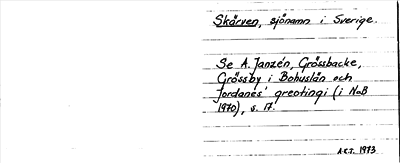 Skärven, sjönamn i Sverige.
Se A. Janzén, Grössbacke,
Grössby i Bohuslän och
Jordanes' greotingi (i NoB
1970), s. 17.
A.E.T. 1973